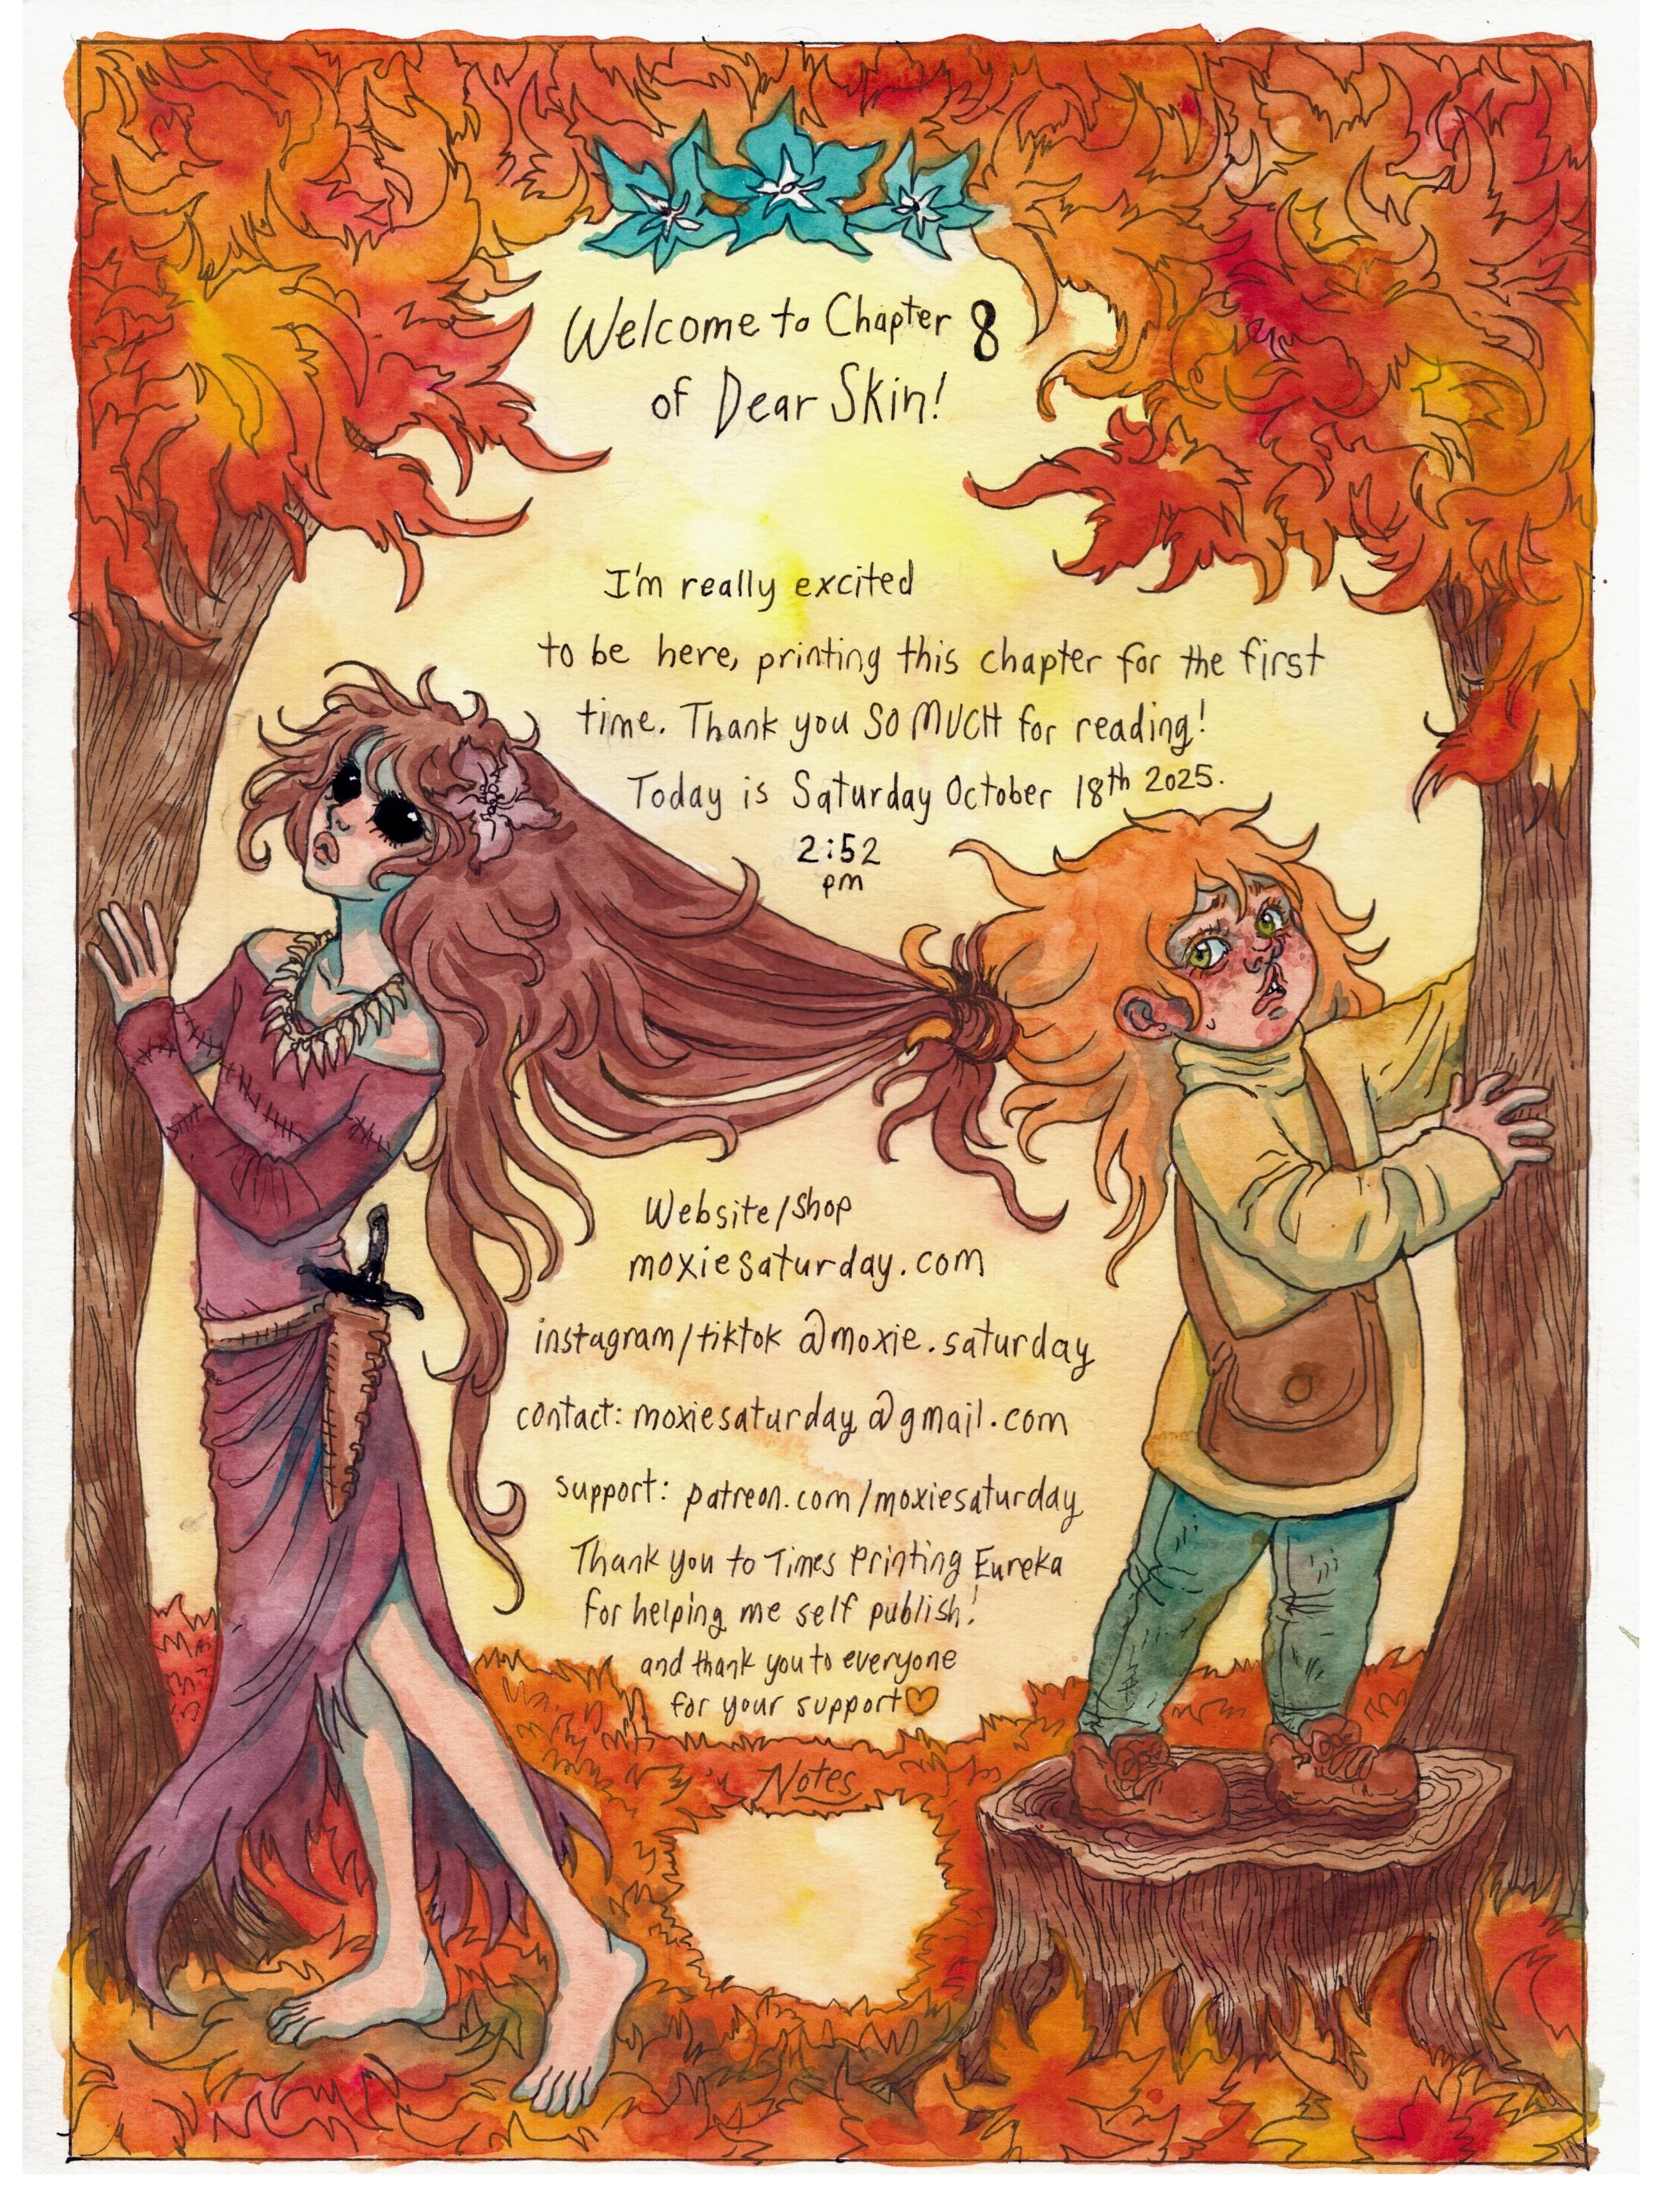 Welcome to Chapter 8
of Dear Skin!
I'm really excited
to be here, printing this chapter for the first
time. Thank you SO MUCH for reading!
Today is Saturday October 18th 2025.
2:52
pm
Website/Shop
moxiesaturday.com
instagram/tiktok @moxie.saturday
contact: moxiesaturday@gmail.com
support: patreon.com/moxiesaturday
Thank you to Times Printing Eureka
for helping me self publish!
and thank you to everyone
for your support♡
Notes